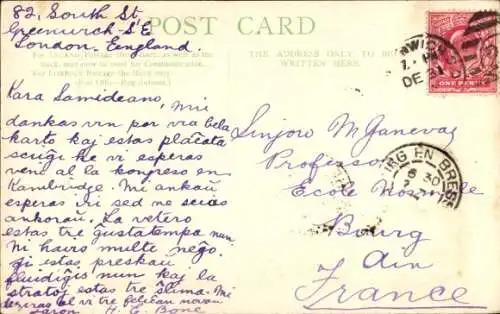 82, South St.
Greenwich S.E
London. England.
POST CARD
THE ADDRESS ONLY TO BE
WRITTEN HERE.
Kara Samideano, Mi
dankas vin por via bela
karto kaj estas plaĉata
sciiĝi ke vi esperas
veni al la kongreso en
Kambridge. Mi ankaŭ
esperas iri sed ne scias
ankoraŭ. La vetero
estas tre ĝustatempa nun
Ni havis multe neĝo.
ĝi estas preskaŭ
fluidiĝis nun kaj la
stratoj estas tre ŝlima. Mi
deziras al vi tre feliĉan novan
jaron. H. E. Bone
Sinjoro M Ganevaz
Professor
Ecole Normale
Bourg
Ain
France
ONE PENNY
DE 31
RG EN BRESSE